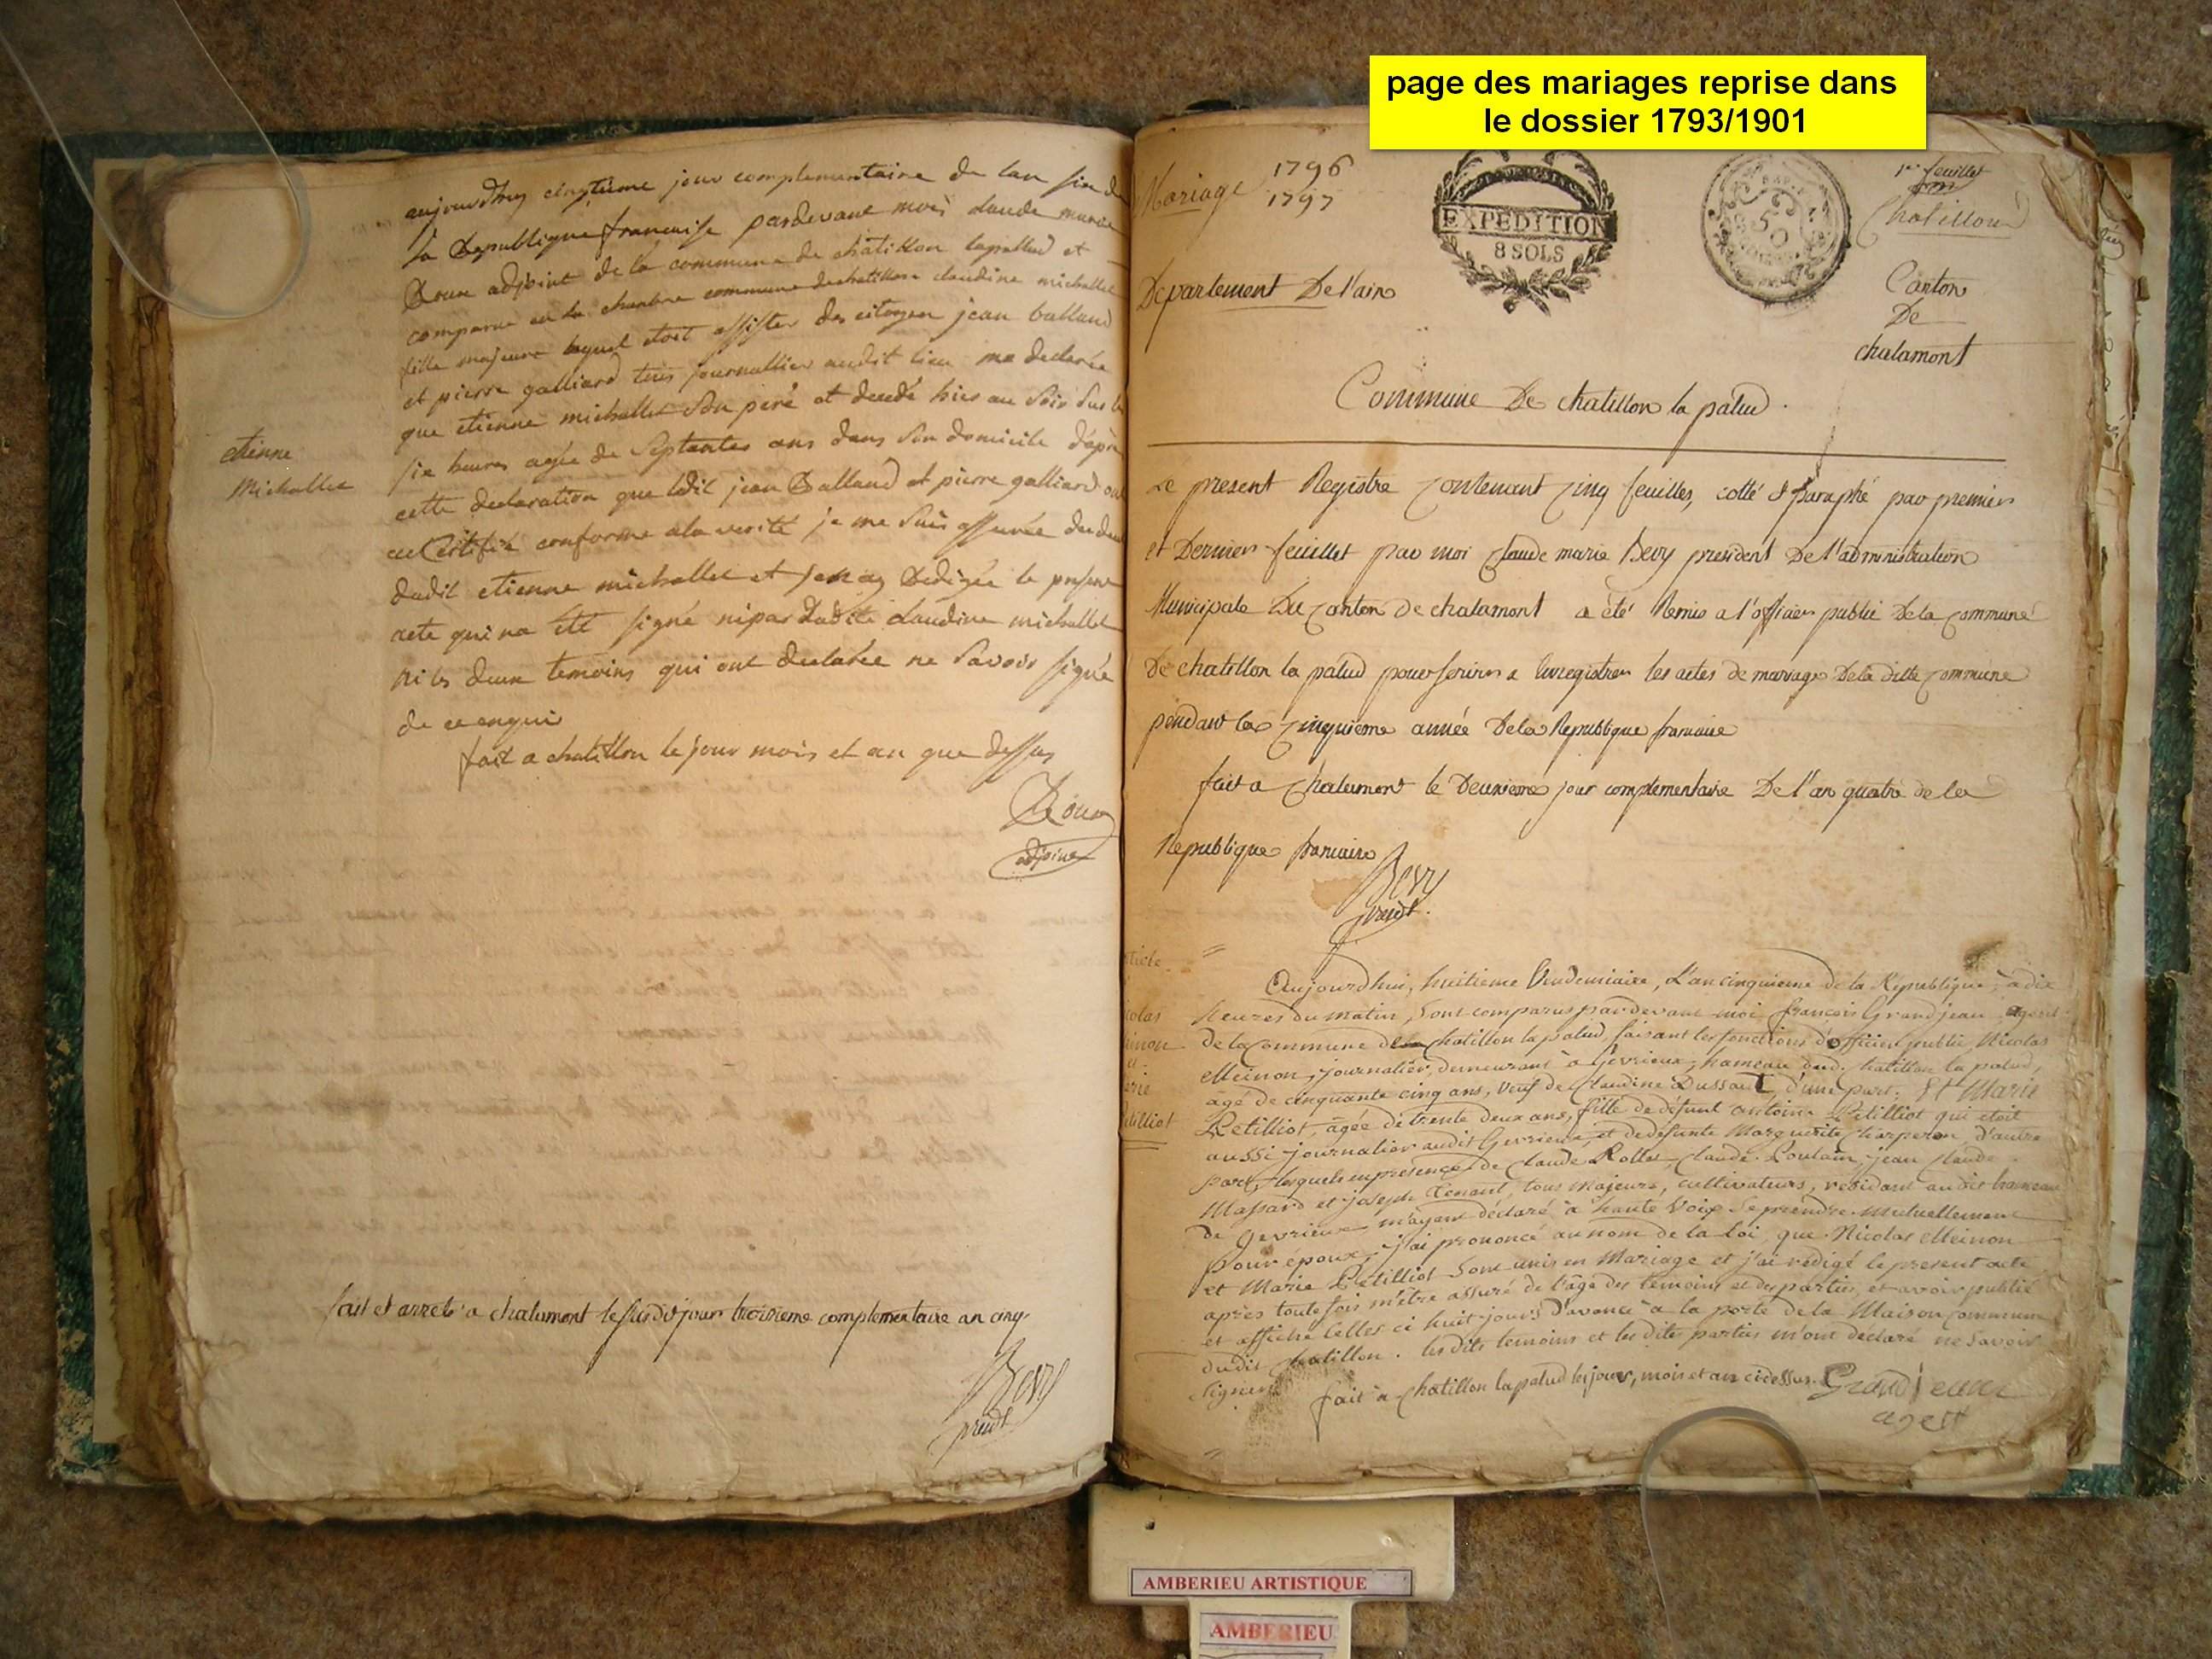 page des mariages reprise dans
le dossier 1793/1901
aujourdhuy cinqtieme jour complementaire de lan six de
la Republique francaise pardevant moi Claude marie
Roux adjoint de la commune de chatillon lapallud et
comparue en la chambre commune de chatillon claudine michallet
fille majeure lequel etoit assister des citoyen jean balland
et pierre galliard tous journallier audit lieu ma declarée
que etienne michallet Son peré et decedé hier au Soir Sur les
six heures agée de Septantes ans dans Son domicile d'aprè
cette declaration que ledit jean Balland et pierre galliard ont
certifié conforme a la verité je me Suis assurée du deces
dudit etienne michallet et jen ay Redigée le present
acte qui na eté signé ni par Ladite claudine michallet
ni les deux temoins qui ont declarée ne Savoir signé
de ce enquis
fait a chatillon le jour mois et an que dessus
Roux
adjoint
etienne
Michallet
fait et arreté a chalamont le susdit jour troisieme complementaire an cinq.
Bevy
presidt
Mariage 1796
1797
EXPEDITION
8 SOLS
50
1er feuillet
Chatillon
Departement De l'ain
Canton
De
chalamont
Commune De chatillon la palud.
Le present Registre contenant cinq feuilles, cotté et paraphé par premier
et Dernier feuillet par moi Claude marie Bevy president De l'administration
Municipale Du canton de chalamont a été Remis a l'officier public De la commune
De chatillon la palud pour servir a Enregistrer les actes de mariage De la ditte commune
pendant la cinquieme année De la Republique francaise
fait a chalamont le Deuxieme jour complementaire De l'an quatre de la
Republique francaise
Bevy
presidt.
Aujourdhui, huitieme Vendemiaire, L'an cinquieme de la Republique, à dix
heures du matin, Sont comparus pardevant moi françois Grandjean agent
de la Commune de la chatillon la palud, faisant les fonctions d'officier public, Nicolas
Meinon, journalier, demeurant à Gevrieux, hameau dud. chatillon la palud,
agé de cinquante cinq ans, veuf de Claudine Dussaut d'une part; Et Marie
Petilliot, agée de trente deux ans, fille de défunt antoine Petilliot qui etoit
aussi journalier audit Gevrieux, et de défunte Marguerite Charperon, d'autre
part, lesquels en presence de Claude Rollet, Claude Poulain, jean Claude
Massard et joseph Tenant, tous Majeurs, cultivateurs, residant audit hameau
de Gevrieux m'ayant déclaré à haute Voix Se prendre Mutuellement
pour époux, j'ai prononcé au nom de la Loi, que Nicolas Meinon
et Marie Petilliot Sont unis en Mariage et j'ai rédigé le present acte
après toutefois m'être assuré de l'âge des temoins et des parties, et avoir publié
et affiché Celles ci huit jours d'avance à la porte de la Maison Commune
dudit chatillon. les dits temoins et les dites parties m'ont declaré ne Savoir
Signer
fait à chatillon la palud les jour, mois et an ci dessus. Grandjean
agent
AMBERIEU ARTISTIQUE
AMBERIEU